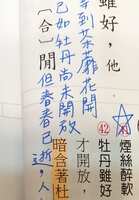 雖好，他
〔合〕閒
等到荼蘼花開
已如牡丹尚未開放
但春青已逝，人
煙絲醉軟
42
牡丹雖好
才開放，
暗含著杜